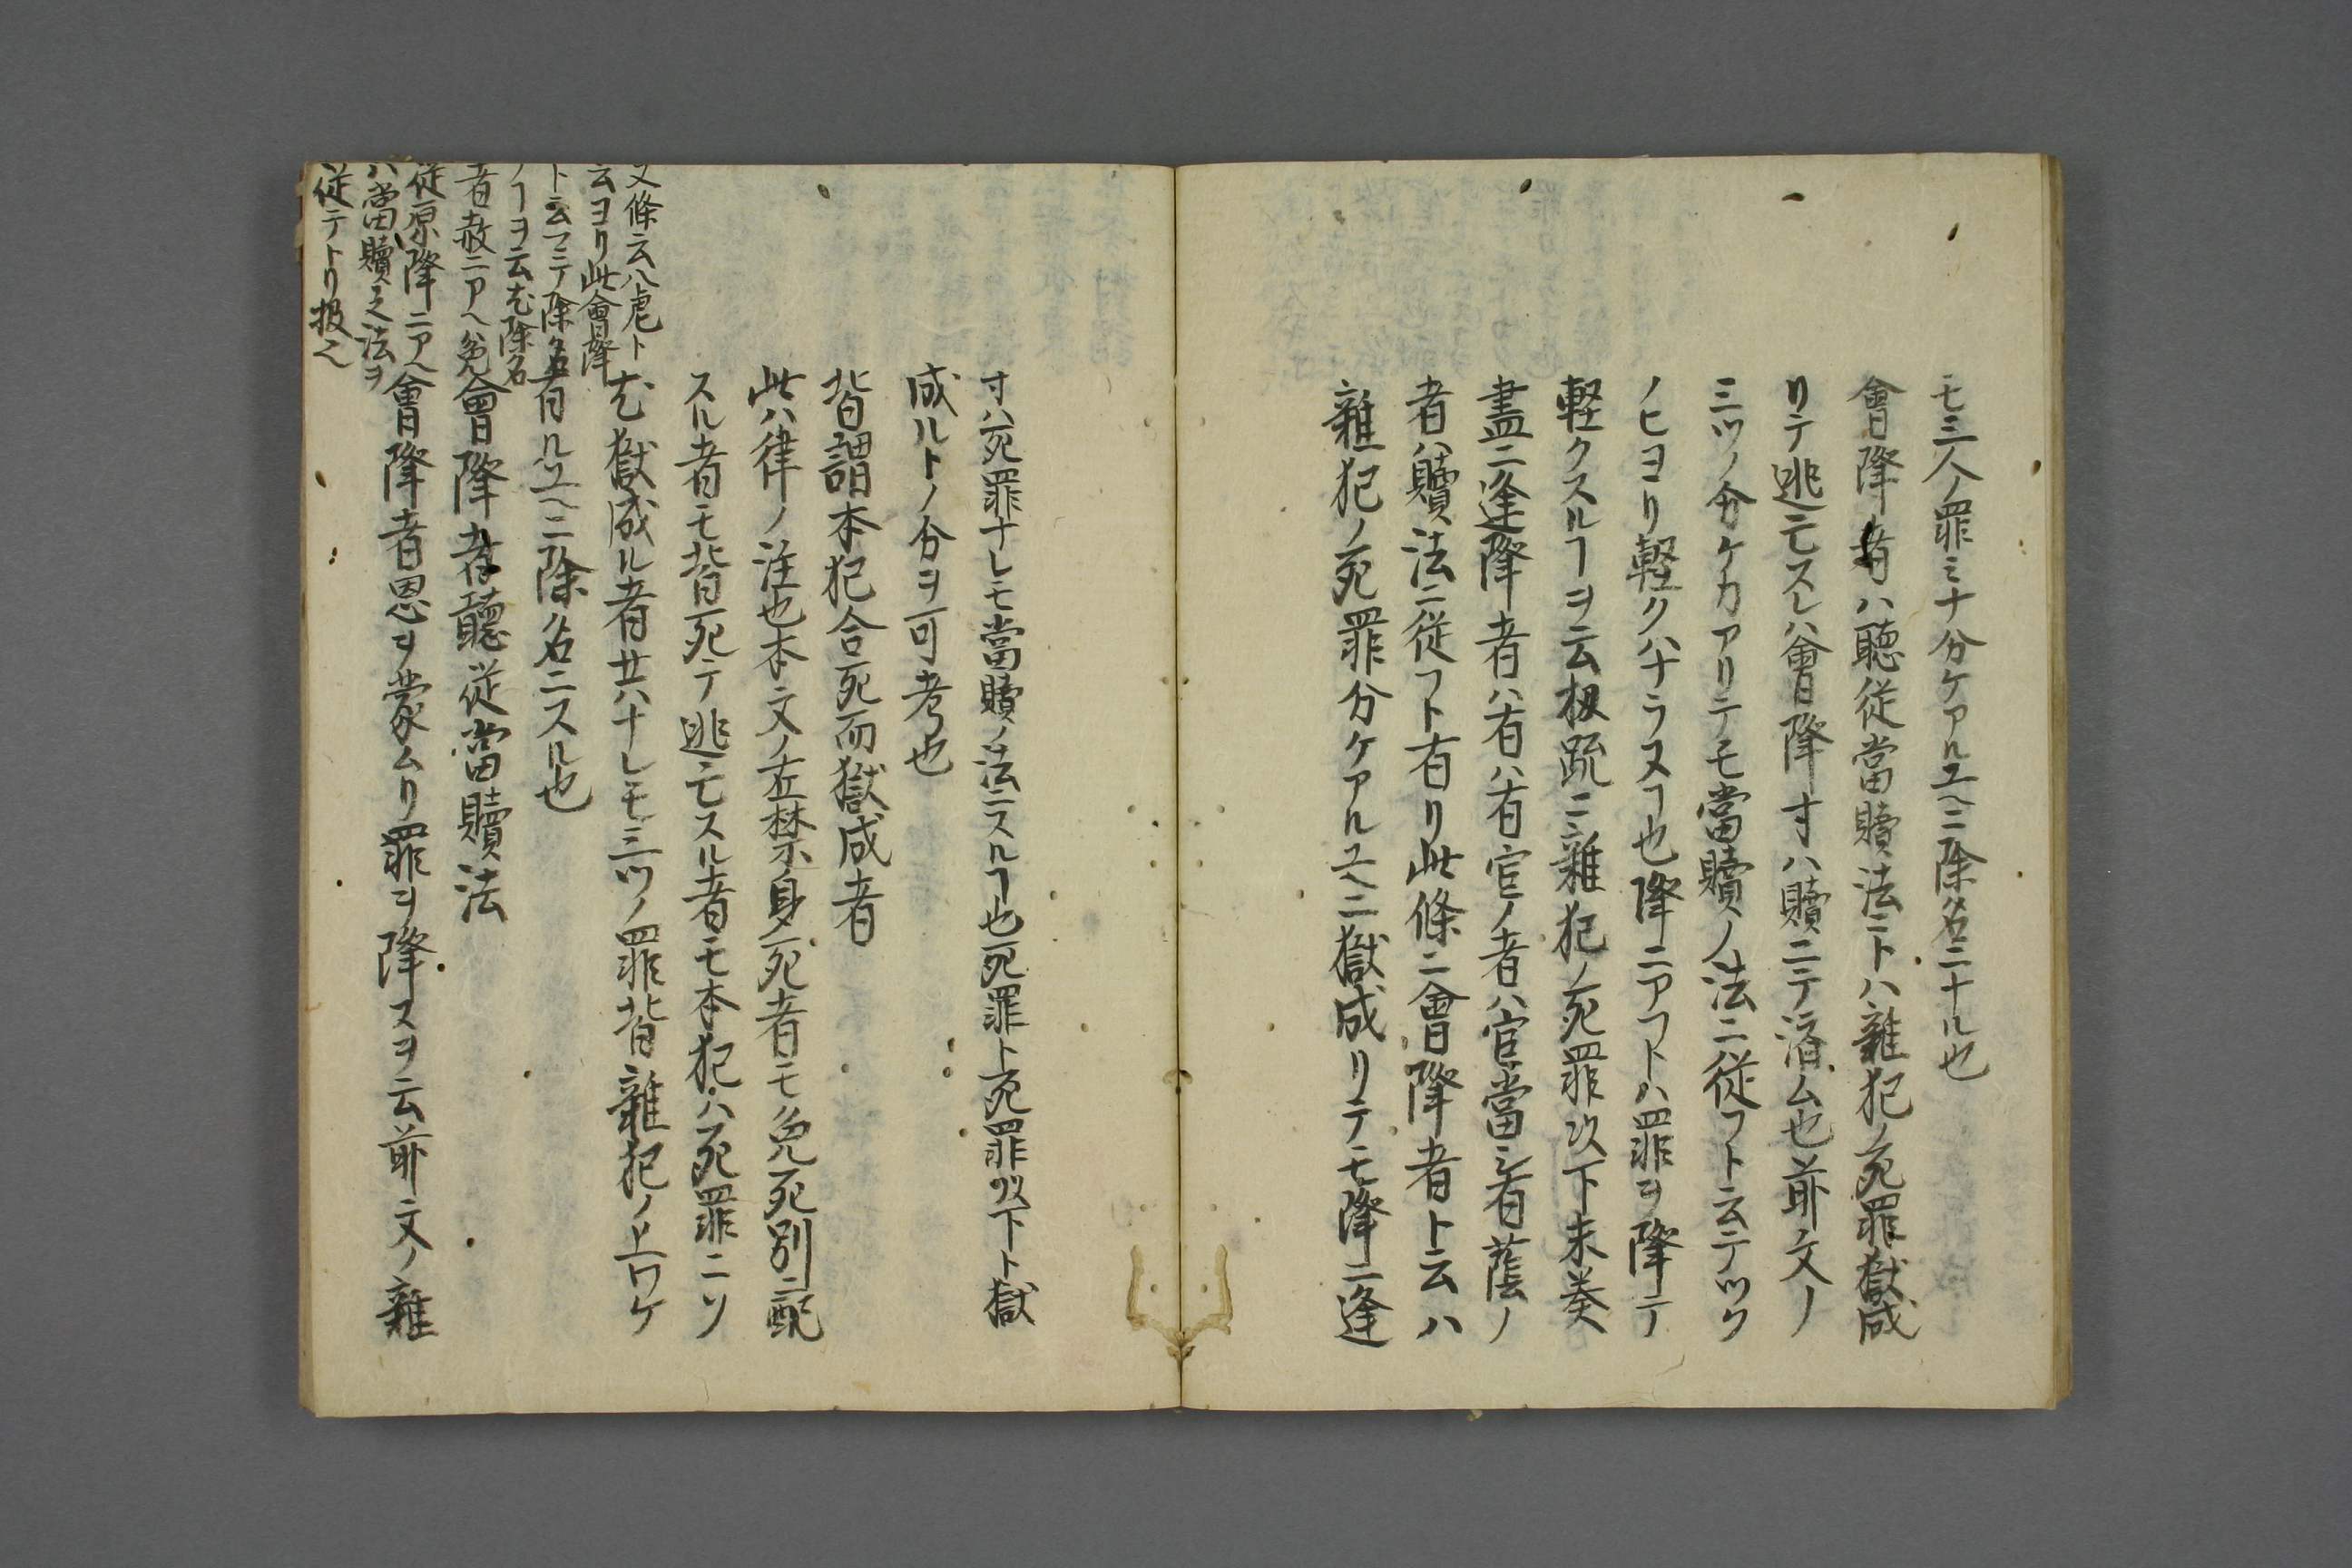 モ三人ノ罪ミナ分ケアルユヘニ除名ニナル也
會降者ハ聴従當贖法ニトハ雜犯ノ死罪獄成
リテ逃亡スレハ會降寸ハ贖ニテ済ム也前文ノ
三ツノ分ケカアリテモ當贖ノ法ニ従フト云テツク
ノヒヨリ軽クハナラヌヿ也降ニアフトハ罪ヲ降テ
軽クスルヿヲ云扨疏ニ雜犯ノ死罪以下未奏
盡ニ逢降者ハ有ハ有官ノ者ハ官當シ有蔭ノ
者ハ贖法ニ従フト有リ此條ニ會降者ト云ハ
雜犯ノ死罪分ケアルユヘニ獄成リテモ降ニ逢
寸ハ死罪ナレモ當贖ノ法ニスルヿ也死罪ト死罪以下ト獄
成ルトノ分ヲ可考也
皆謂本犯合死而獄成者
此ハ律ノ注也本文ノ在禁身死者モ免死別ニ配
スル者モ背死テ逃亡スル者モ本犯ハ死罪ニソ
尤獄成ル者共ハナレモ三ツノ罪皆雜犯ノ上ワケ
有ルユヘニ除名ニスル也
會降者聽従當贖法
會降者恩ヲ蒙ムリ罪ヲ降スヲ云前文ノ雜
又條云八虐ト
云ヨリ此會降
ト云マテ除名
ノヿヲ云尤除名
者赦ニアヘ免
従原降ニアヘ
ハ當贖之法ヲ
従テトリ扱ヘ